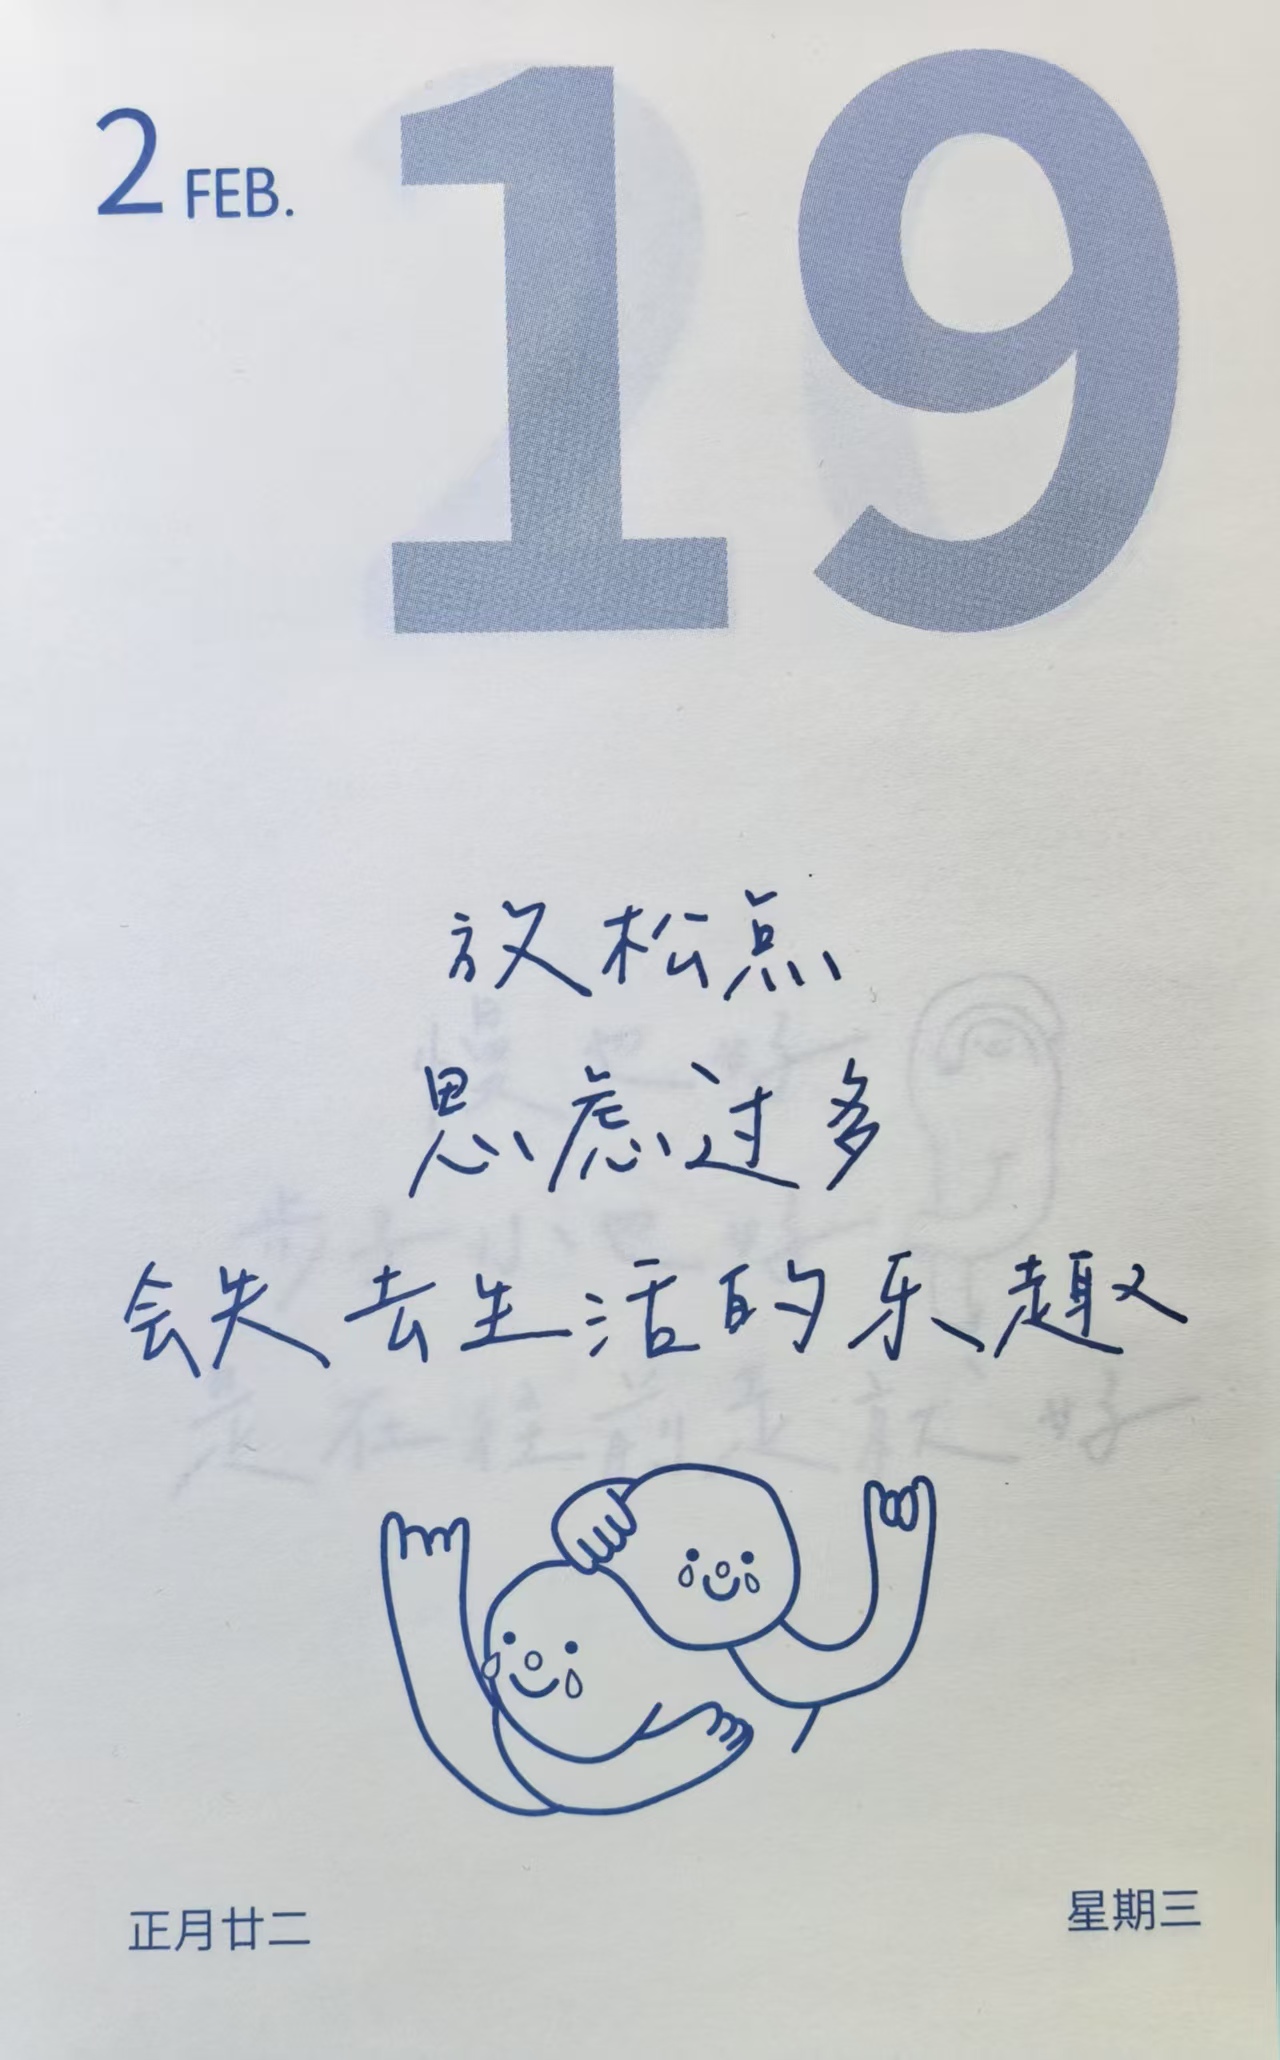 2 FEB.
19
放松点
思虑过多
会失去生活的乐趣
正月廿二
星期三